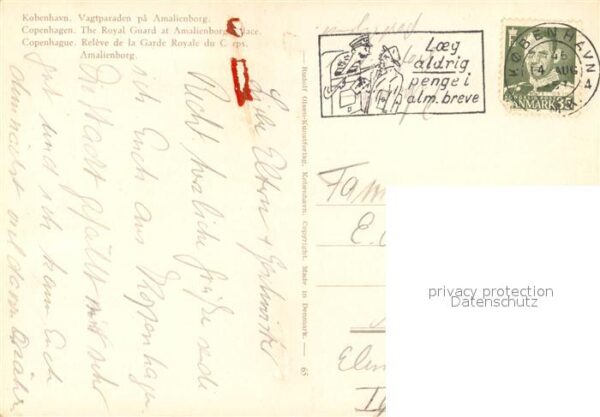 København. Vagtparaden på Amalienborg.
Copenhagen. The Royal Guard at Amalienborg Palace.
Copenhague. Relève de la Garde Royale du Corps.
Amalienborg.
Læg
aldrig
penge i
alm. breve
KØBENHAVN
AUG
DANMARK 35
Rudolf Olsens Kunstforlag, København. Copyright. Made in Denmark. — 65
Liebe Eltern + Geschwister
Recht herzliche Grüße sende
ich Euch aus Kopenhagen
D. Stadt gefällt mir sehr
gut und ich kann Euch
demnächst viel davon erzähl
Fam
E.
privacy protection
Datenschutz